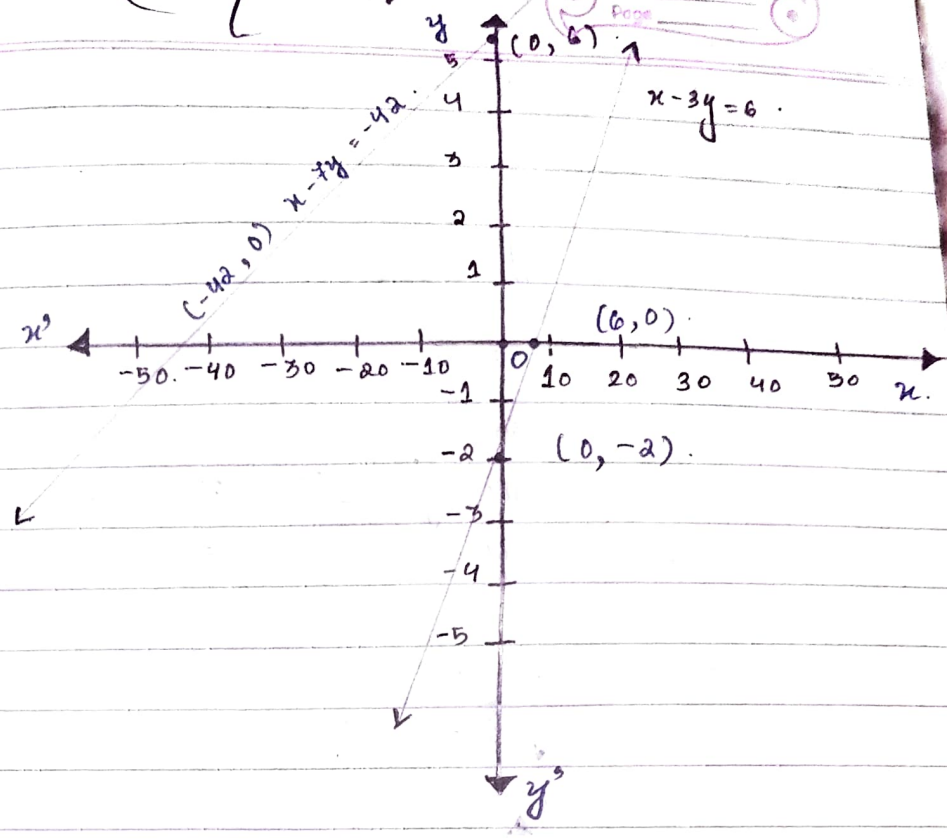 Page
y
(0, 6).
5
x-3y=6.
4
x-7y=-42.
3
2
(-42, 0)
1
(6,0).
x'
-50. -40 -30 -20 -10 0 10 20 30 40 50 x.
-1
-2 (0, -2).
-3
-4
-5
y'